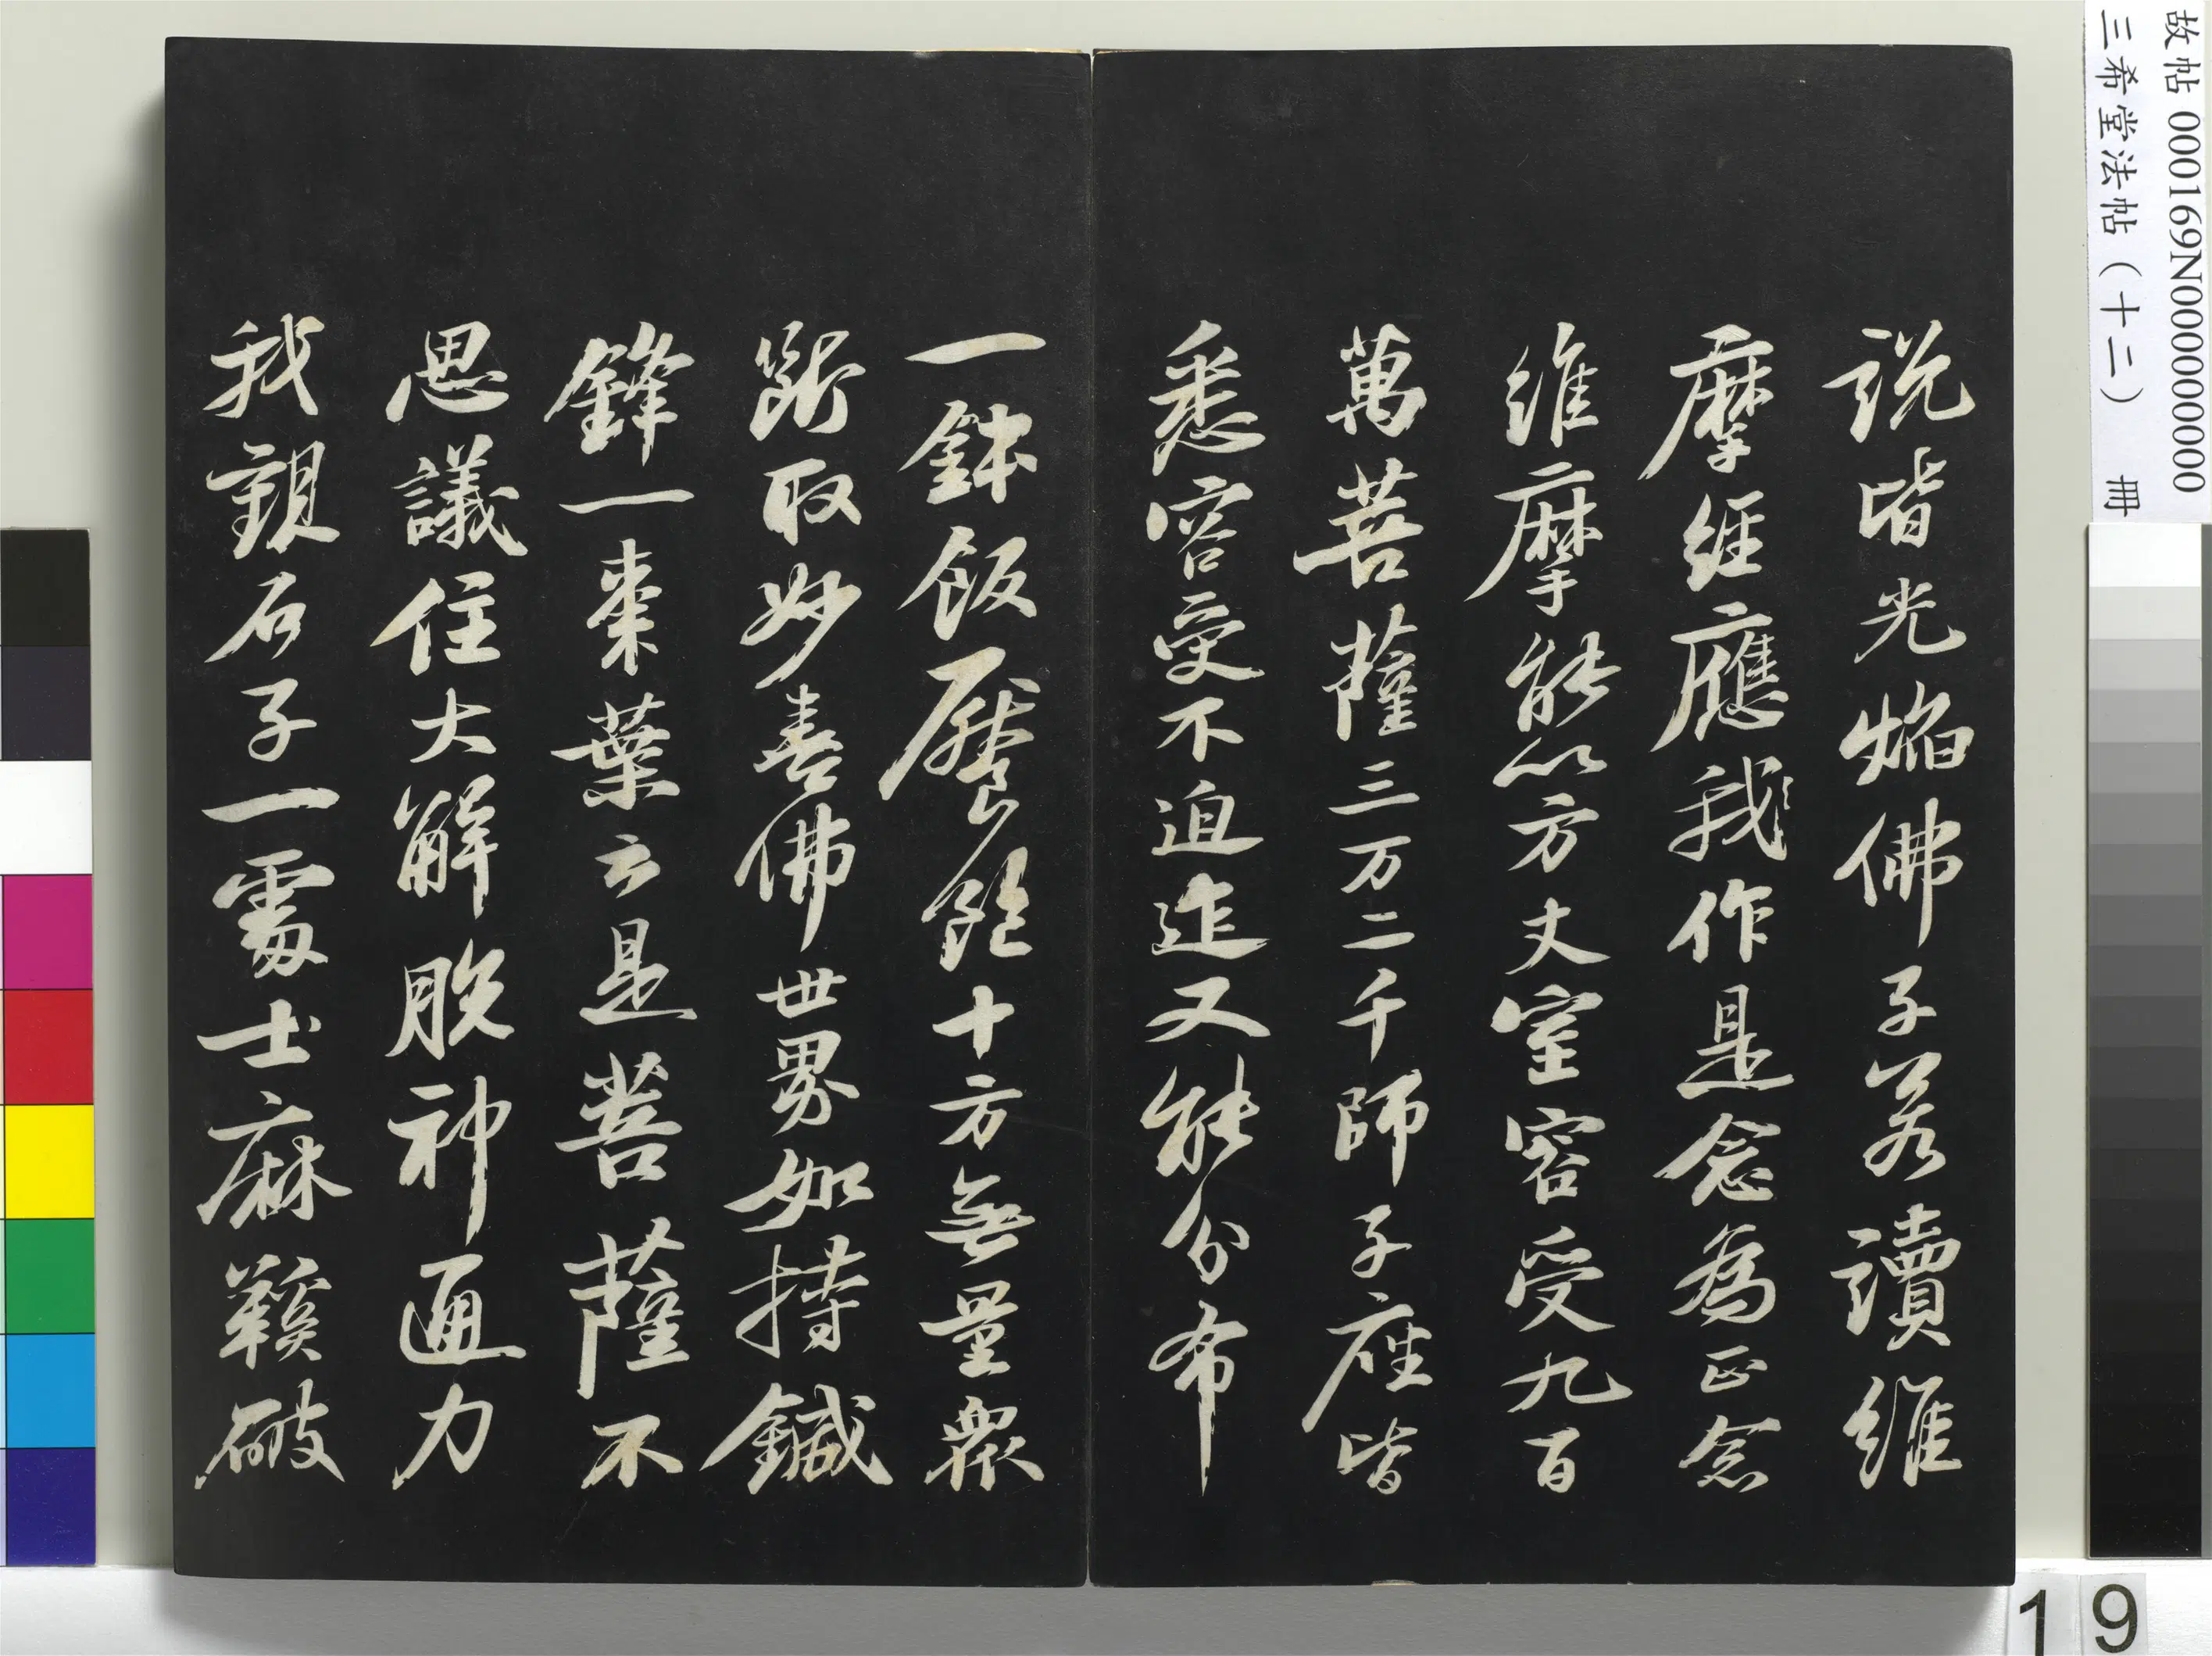 説皆光焰佛子若讀維
摩經應我作是念為正念
維摩能以方丈室容受九百
萬菩薩三万二千師子座皆
悉容受不迫迮又能分布
一鉢飯饜飽十方無量衆
斷取妙喜佛世界如持鍼
鋒一棗葉云是菩薩不
思議住大解脫神通力
我觀石子一處士麻鞵破
故帖 000169N000000000
三希堂法帖（十二） 冊
19